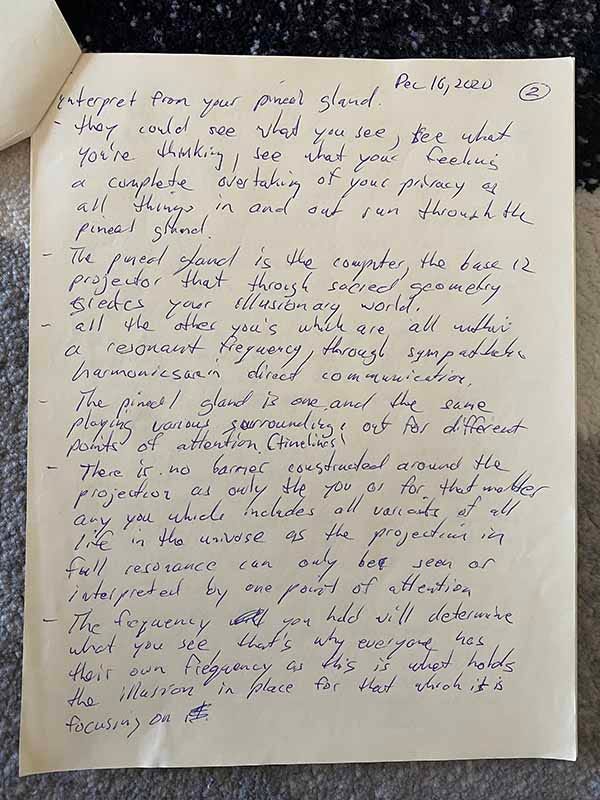 Dec 16, 2020 2
interpret from your pineal gland.
- they could see what you see, see what
you're thinking, see what your feeling
a complete overtaking of your privacy as
all things in and out run through the
pineal gland.
- The pineal gland is the computer, the base 12
projector that through sacred geometry
creates your illusionary world.
- all the other you's which are all within
a resonant frequency, through sympathetic
harmonics are in direct communication.
- The pineal gland is one and the same
playing various surroundings out for different
points of attention (timelines)
- There is no barrier constructed around the
projection as only the you or for that matter
any you which includes all variants of all
life in the universe as the projection in
full resonance can only be seen or
interpreted by one point of attention
- The frequency you hold will determine
what you see that's why everyone has
their own frequency as this is what holds
the illusion in place for that which it is
focusing on